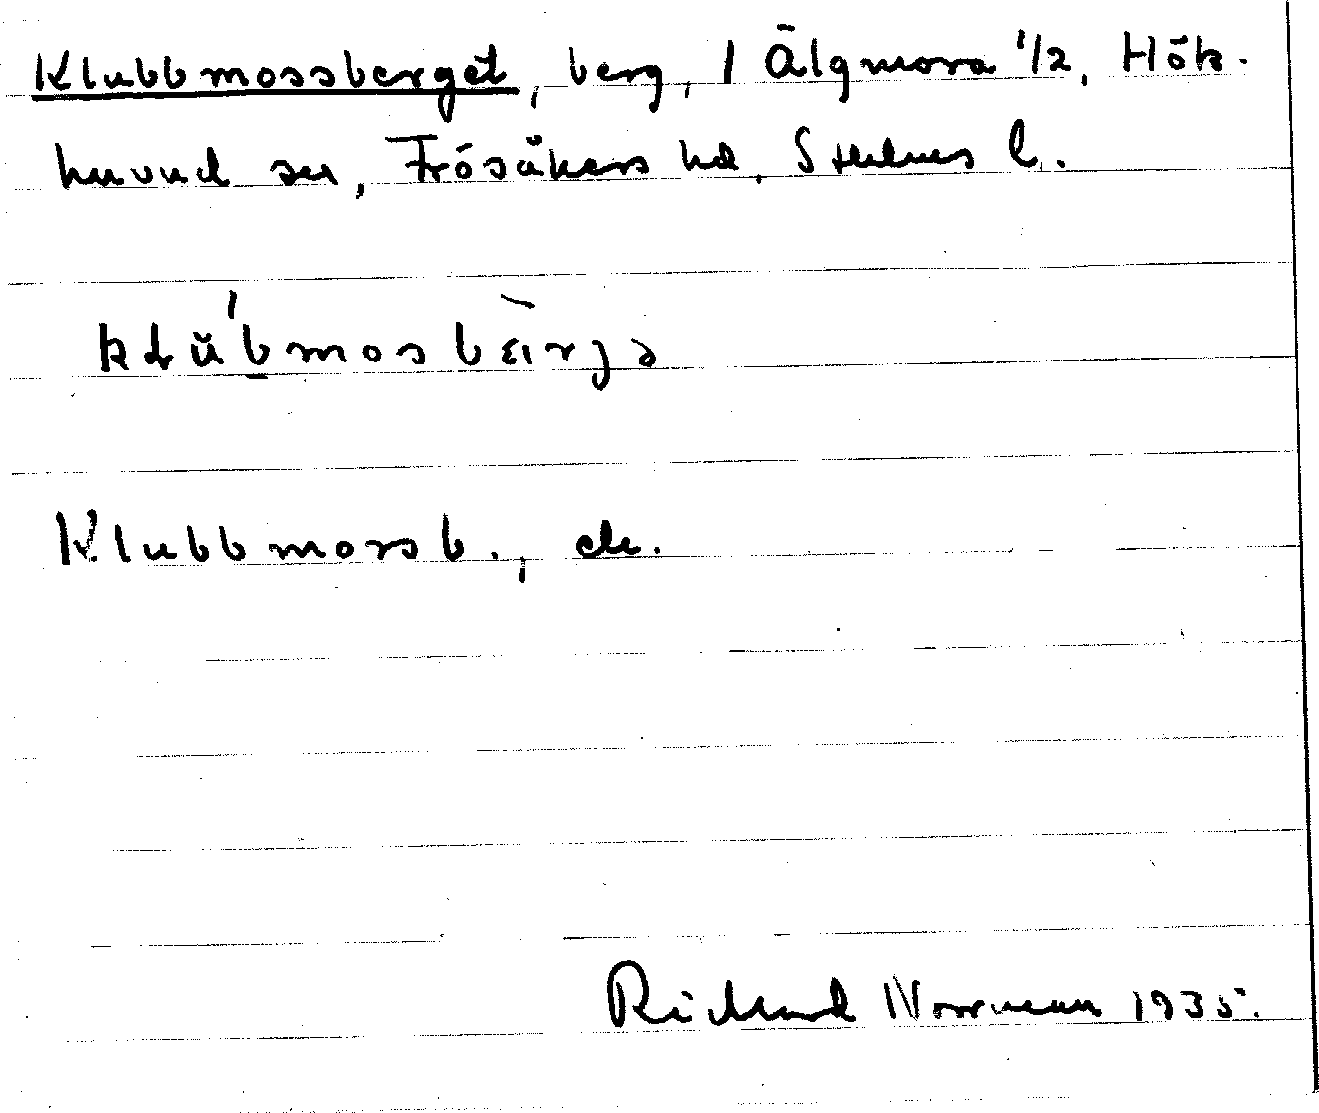 Klubbmossberget, berg, I Älgmora 1/2, Hök-
huvud sn, Frösåkers hd, Sthlms l.
klŭ'bmosbärjə
Klubbmossb., ek.
Richard Norrman 1935.